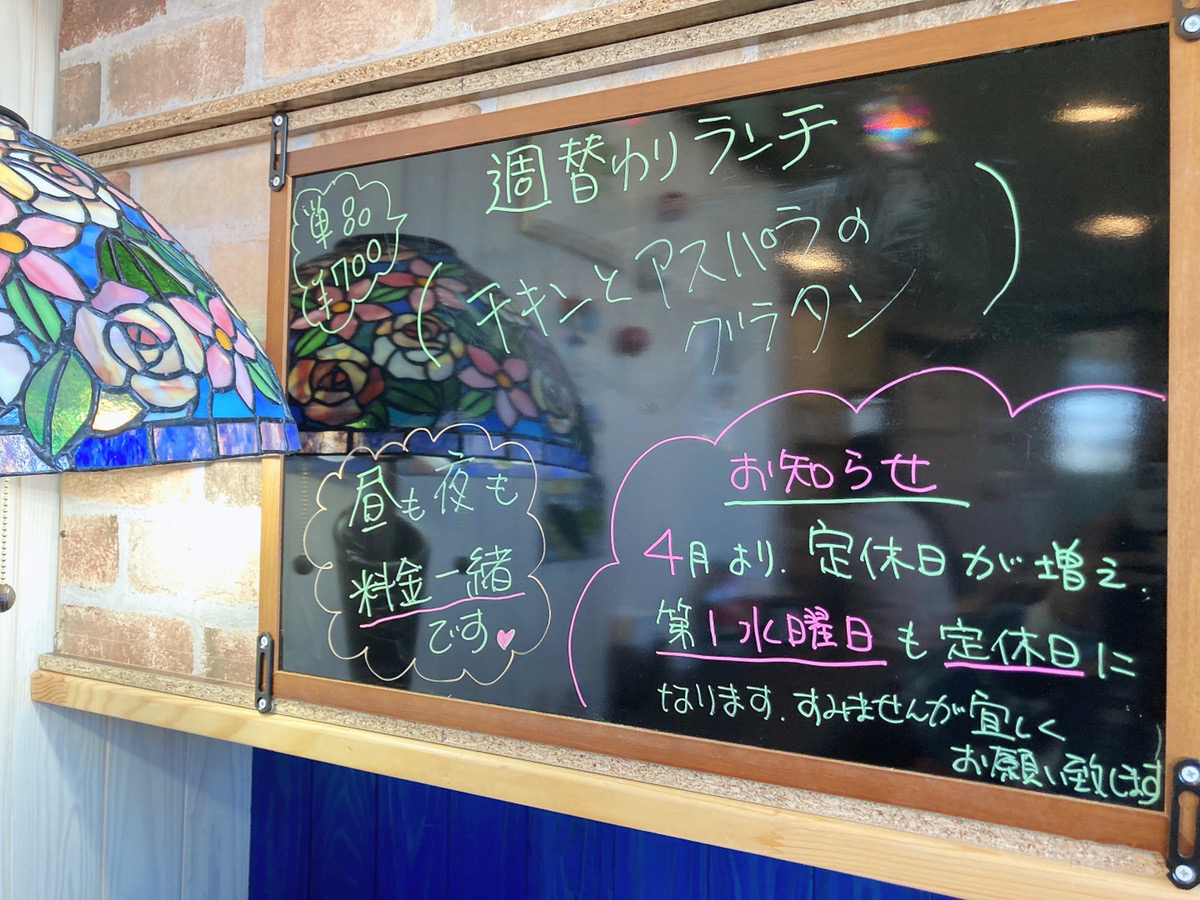 週替わりランチ
単品
¥700
(チキンとアスパラの
グラタン)
昼も夜も
料金一緒
です♥
お知らせ
4月より、定休日が増え、
第1水曜日も定休日に
なります。すみませんが宜しく
お願い致します